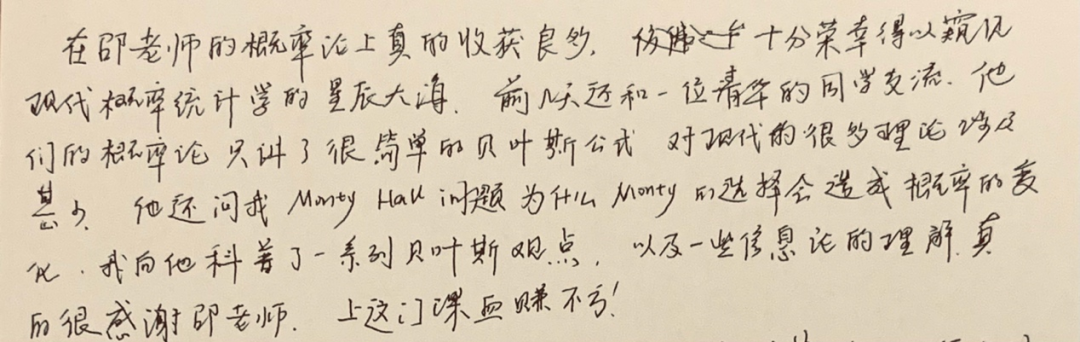 在邵老师的概率论上真的收获良多. 十分荣幸得以窥视
现代概率统计学的星辰大海. 前几天还和一位清华的同学交流. 他
们的概率论只讲了很简单的贝叶斯公式 对现代的很多理论涉及
甚少. 他还问我 Monty Hall 问题为什么 Monty 的选择会造成概率的变
化. 我向他科普了一系列贝叶斯观点, 以及一些信息论的理解. 真
的很感谢邵老师. 上这门课血赚不亏!